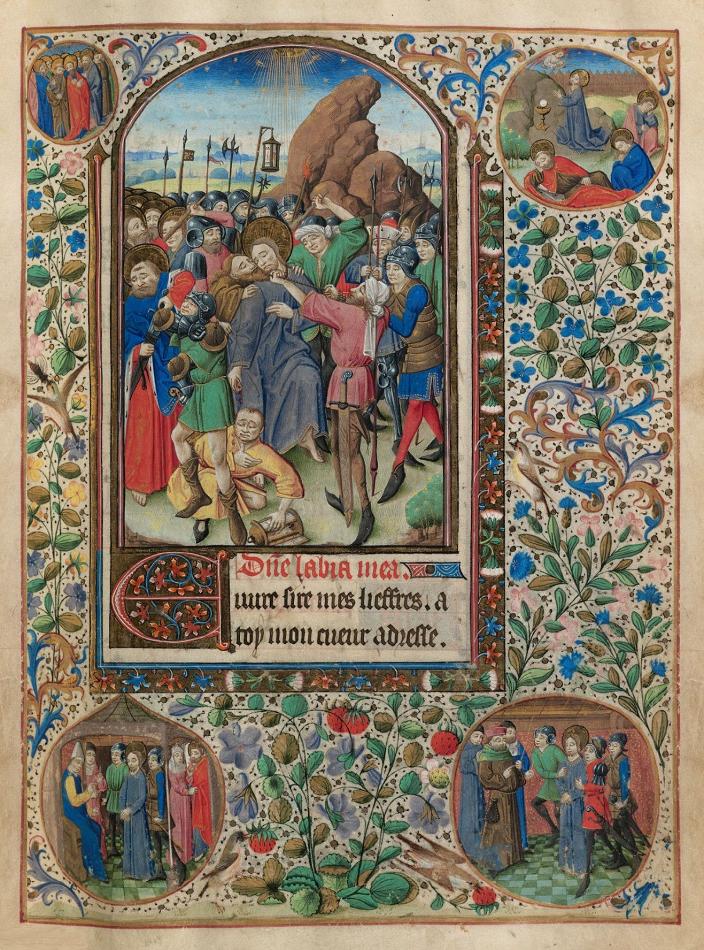 Dñe labia mea.
Euure sire mes lieffres. a
toy mon cueur adresse.